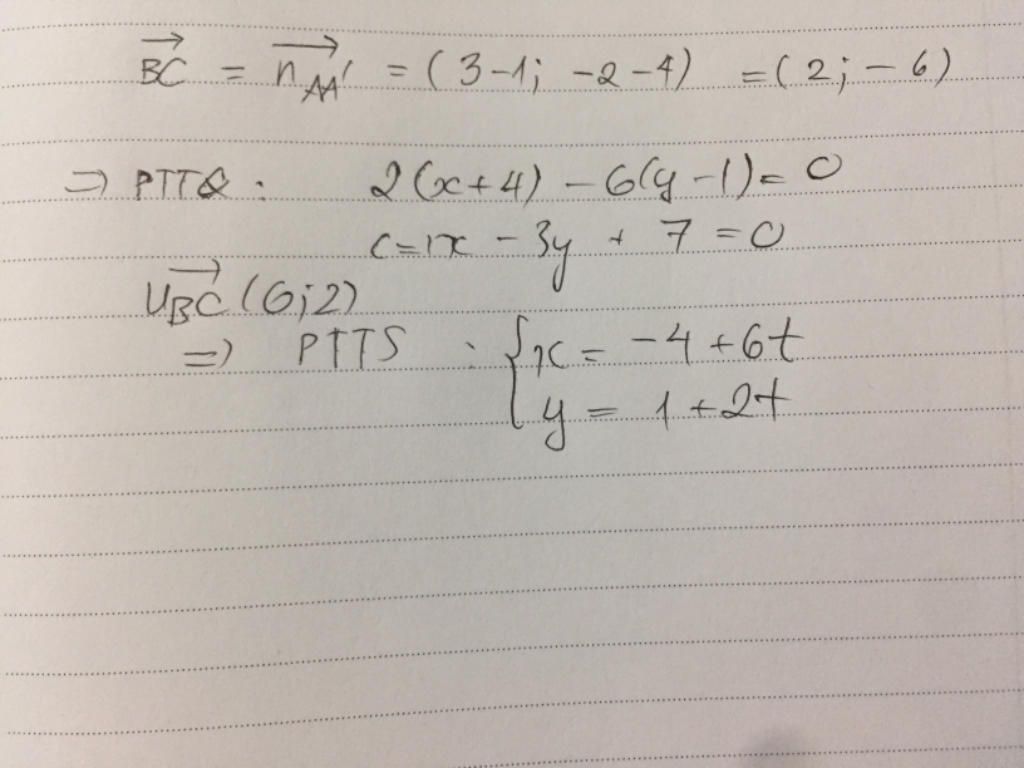 BC = n AA' = (3-1; -2-4) = (2; -6)
=) PTTQ : 2(x+4) - 6(y-1) = 0
(=)x - 3y + 7 = 0
U BC (6;2)
=) PTTS : { x = -4 + 6t
y = 1 + 2t